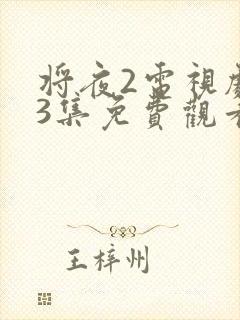 将夜2電視劇
3集免費觀看
王梓州